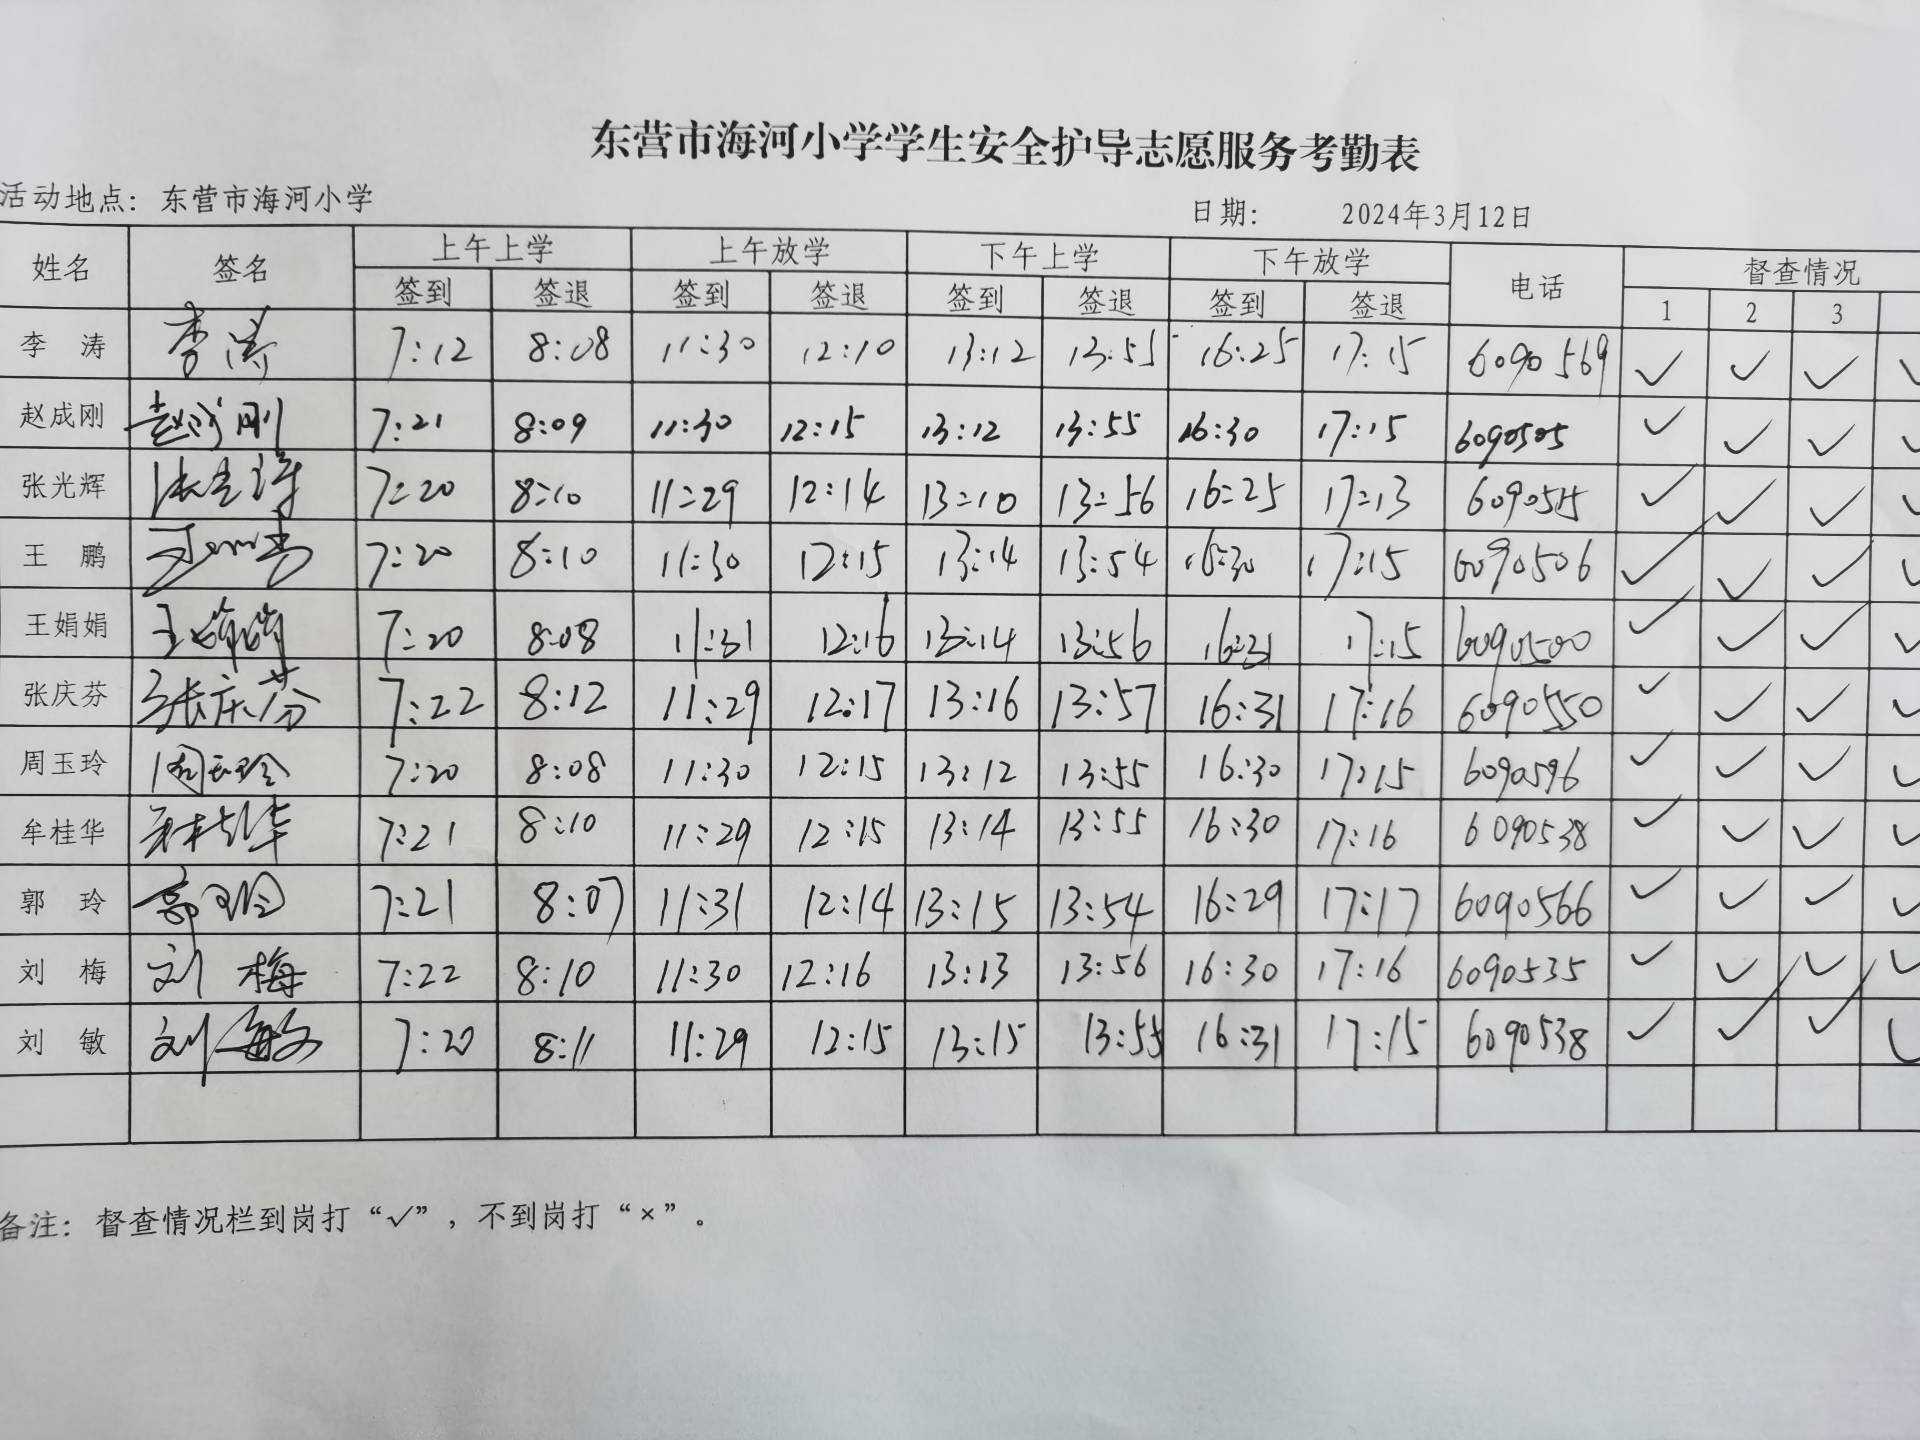 东营市海河小学学生安全护导志愿服务考勤表
活动地点：东营市海河小学 日期： 2024年3月12日
姓名 签名 上午上学 上午放学 下午上学 下午放学 电话 督查情况
签到 签退 签到 签退 签到 签退 签到 签退 1 2 3
李涛 李涛 7:12 8:08 11:30 12:10 13:12 13:55 16:25 17:15 6090569 ✓ ✓ ✓ ✓
赵成刚 赵成刚 7:21 8:09 11:30 12:15 13:12 13:55 16:30 17:15 6090505 ✓ ✓ ✓ ✓
张光辉 张光辉 7:20 8:10 11:29 12:14 13:10 13:56 16:25 17:13 ✓ ✓ ✓ ✓
王鹏 7:20 8:10 11:30 12:15 13:14 13:54 16:30 17:15 6090506 ✓ ✓ ✓ ✓
王娟娟 王娟娟 7:20 8:08 11:31 12:16 13:14 13:56 16:31 17:15 6090500 ✓ ✓ ✓ ✓
张庆芬 张庆芬 7:22 8:12 11:29 12:17 13:16 13:57 16:31 17:16 6090550 ✓ ✓ ✓ ✓
周玉玲 周玉玲 7:20 8:08 11:30 12:15 13:12 13:55 16:30 17:15 6090596 ✓ ✓ ✓ ✓
牟桂华 牟桂华 7:21 8:10 11:29 12:15 13:14 13:55 16:30 17:16 6090538 ✓ ✓ ✓ ✓
郭玲 郭玲 7:21 8:07 11:31 12:14 13:15 13:54 16:29 17:17 6090566 ✓ ✓ ✓ ✓
刘梅 刘梅 7:22 8:10 11:30 12:16 13:13 13:56 16:30 17:16 6090535 ✓ ✓ ✓ ✓
刘敏 刘敏 7:20 8:11 11:29 12:15 13:15 13:55 16:31 17:15 6090538 ✓ ✓ ✓ ✓
备注：督查情况栏到岗打“✓”，不到岗打“×”。